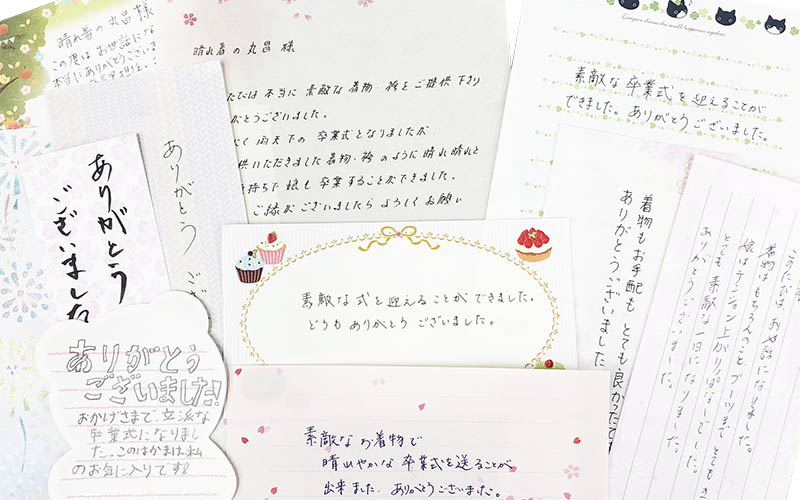 晴れ着の丸昌 様
この度は お世話にな
本当にありがとうございま
晴れ着の丸昌 様
は 本当に 素敵な 着物・袴を ご提供 下さり
がとうございました。
雨天下の 卒業式となりましたが
供いただきました 着物・袴 のように 晴れ晴れと
持ちで 娘も 卒業 することができました。
ご縁が ございましたら よろしく お願い
Everyone shares the small happiness together.
素敵な 卒業式を 迎えることが
できました。ありがとうございました。
ありがとう
ございました
ありがとう ござ
素敵な 式を 迎えることが できました。
どうも ありがとう ございました。
着物もお手配も とても 良かったで
ありがとうございました
このたびは お世話になりました。
着物はもちろんのこと、ブーツまで とても
娘はテンション上がりっぱなしでした。
とても 素敵な 一日に なりました。
ありがとうございました。
ありがとう
ございました!
おかげさまで、立派な
卒業式になりまし
た。このはかまは私
のお気に入りです!
素敵な お着物で
晴れやかな 卒業式を 送ることが
出来ました。ありがとうございました。